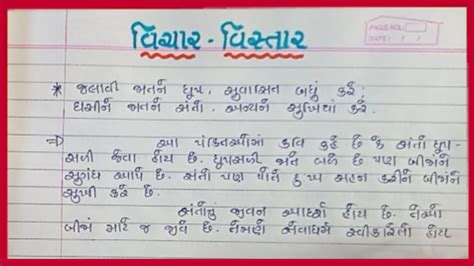 PAGE NO.:
DATE: / /
વિચાર - વિસ્તાર
* જલાવી જાતને ધૂપ, સુવાસિત બધું કરે;
ઘસીને જાતને સંતો, અન્યને સુખિયાં કરે.
⇒ આ પંક્તિઓમાં કવિ કહે છે કે સંતો ધૂપ-
સળી જેવા હોય છે. ધૂપસળી જાતે બળે છે પણ બીજાને
સુગંધ આપે છે. સંતો પણ પોતે દુઃખ સહન કરીને બીજાને
સુખી કરે છે.
સંતોનું જીવન આદર્શ હોય છે. તેઓ
બીજા માટે જ જીવે છે. તેમણે સેવાધર્મ સ્વીકારેલો હોય